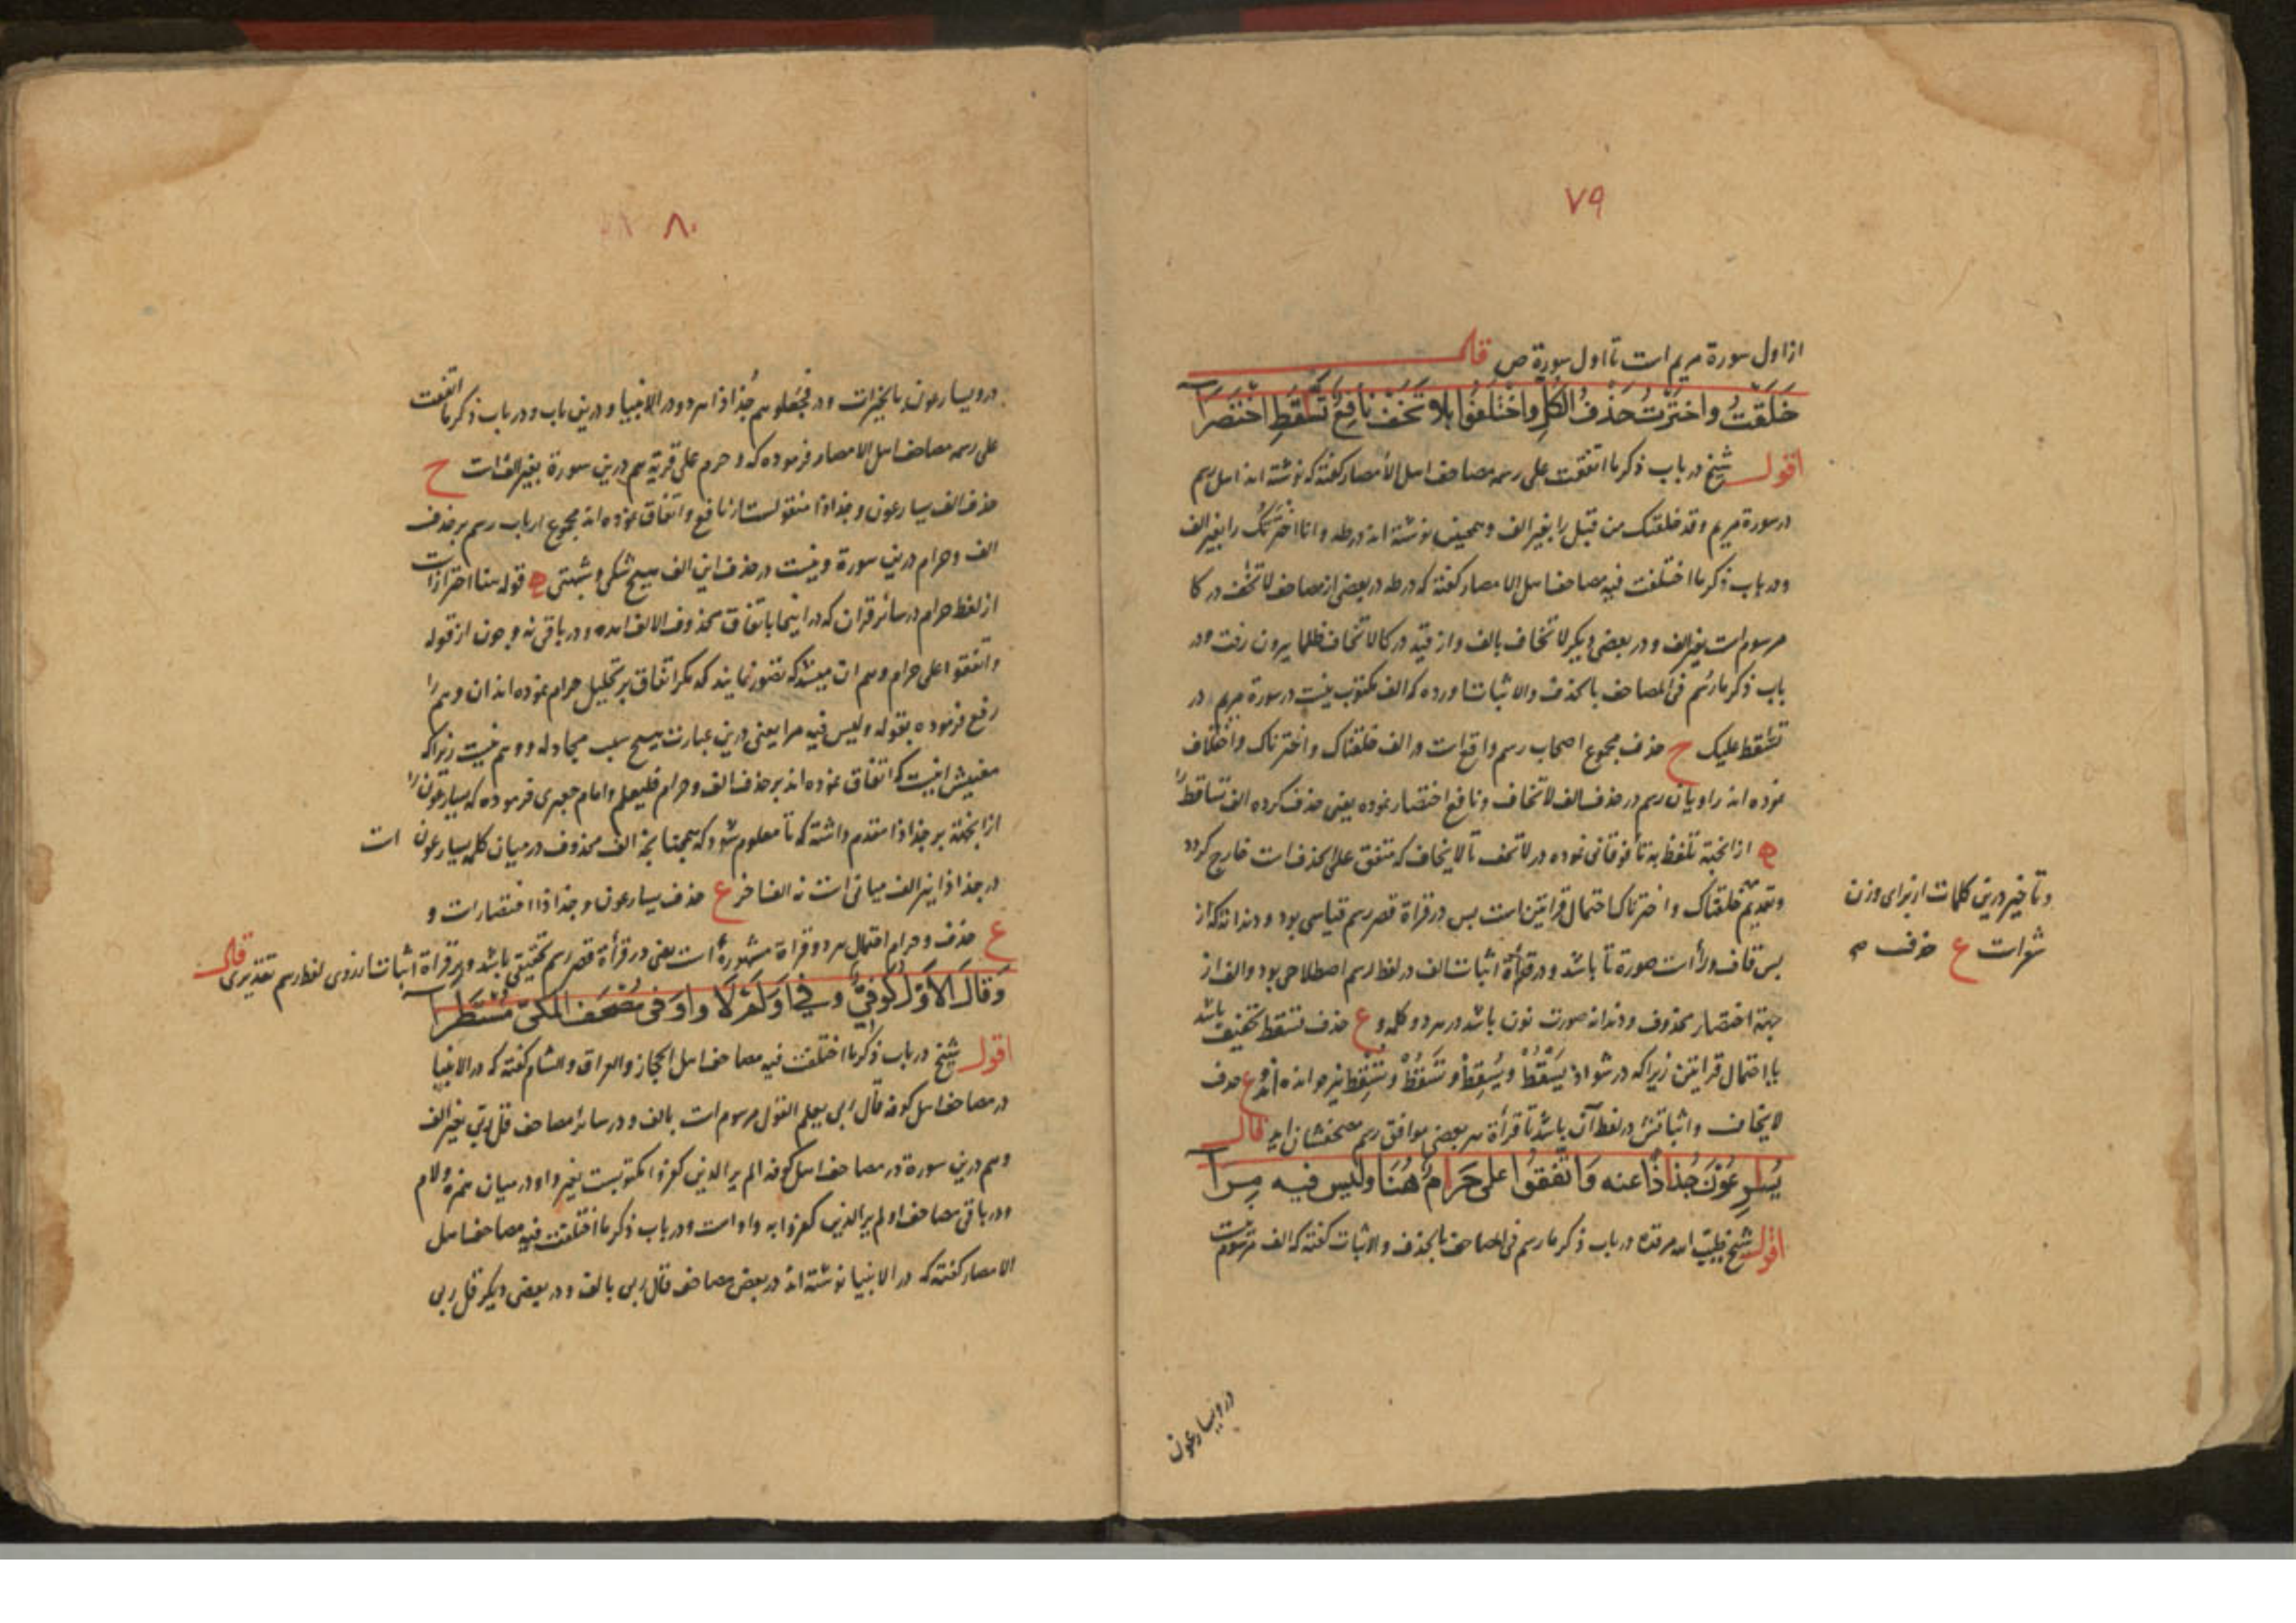 ٧٩
از اول سورة مریم است تا اول سورة ص قال
خَلَقتُ واختَرتُ حَذفُ الكلِ واختَلَفُوا بلا تَخَف نافِعٌ تَسَّقَطِ اختَصَرا
اقول شیخ در باب ذکر ما اتفقت علی رسمه مصاحف اهل الأمصار کفته که نوشته اند اهل رسم
در سورة مریم وقد خلقتک من قبل را بغیر الف و همچنین نوشته اند در طه وانا اخترنک را بغیر الف
و در باب ذکر ما اختلفت فیه مصاحف اهل الامصار کفته که در طه در بعضی از مصاحف لا تخف درکا
مرسوم است بغیر الف و در بعضی دیکر لا تخاف بالف و از قید درکا لا تخاف ظلما بیرون رفت و در
باب ذکر ما رسم فی المصاحف بالحذف والاثبات اورده که الف مکتوب نیست در سورة مریم در
تسقط علیک ح حذف مجموع اصحاب رسم واقع است در الف خلقناک و اخترناک و اختلاف
نموده اند راویان رسم در حذف الف لا تخاف و نافع اختصار نموده یعنی حذف کرده الف تساقط را
ه از انجهة تلفظ به تاء فوقانی نموده در لا تخف تا لا یخاف که متفق علی الحذف است خارج کردد
وتقدیم خلقناک و اخترناک احتمال قراتین است پس در قراة قصر رسم قیاسی بود و دندانه که از
پس قاف و راء است صورة تا باشد و در قرأة اثبات الف در لفظ رسم اصطلاحی بود و الف از
جهة اختصار محذوف و دندانه صورت نون باشد در هر دو کلمه و ع حذف تسقط تخفیف باشد
با احتمال قراتین زیرا که در شواذ یَسْقُطْ ویُسْقِطْ و تَسْقُطْ وتُسْقِطْ نیز خوانده اند و ع حذف
لا یخاف و اثباتش در لفظ آن باشد تا قرأة هر بعضی موافق رسم مصحفشان اید قال
یُسٰرِعُوْنَ جُذاذًا عنه وَاتَّفقوُا على حَرامٌ هُنَا وليس فيه مِرَا
اقول شیخ طیب الله مرقده در باب ذکر ما رسم فی المصاحف بالحذف والاثبات کفته که الف مرسوم نیست
و تاخیر درین کلمات از برای وزن
شعر است ع حذف صح
در ویسارعون
٨٠
در ویسارعون بالخیرات و در فجعلهم جُذاذا هر دو در الانبیا و درین باب و در باب ذکر ما اتفقت
علی رسمه مصاحف اهل الامصار فرموده که و حرم علی قریة هم درین سورة بغیر الف است ح
حذف الف یسارعون و جذاذا منقولست از نافع و اتفاق نموده اند مجموع ارباب رسم بر حذف
الف و حرام درین سورة و نیست در حذف این الف هیچ شکی و شبهتی ه قوله هنا احتراز است
از لفظ حرام در سائر قران که در اینجا باتفاق محذوف الالف امده و در باقی نه و چون از قوله
واتفقوا علی حرام وهم ان میشد که تصور نمایند که مکر اتفاق بر تحلیل حرام نموده اند ان وهم را
رفع فرموده بقوله ولیس فیه مرا یعنی درین عبارت هیچ سبب مجادله و وهم نیست زیرا که
معنیش اینست که اتفاق نموده اند بر حذف الف و حرام فلیعلم و امام جعبری فرموده که یسارعون را
از انجهة بر جذاذا مقدم داشته که تا معلوم شود که همچنانچه الف محذوف در میان کلمه یسارعون است
در جذاذا نیز الف میانی است نه الف اخر ع حذف یسارعون و جذاذا اختصار است و
ع حذف و حرام احتمال هر دو قراة مشهوره است یعنی در قرأة قصر رسم تحقیقی باشد و در قراة اثبات از روی لفظ رسم تقدیری قال
وَقَالَ الاوَّلُ كُوفِيٌّ وَفِي أوَلَمْ لَا وَاوَ فِي مُصْحَفِ المكيِّ مُسْتَطَرا
اقول شیخ در باب ذکر ما اختلفت فیه مصاحف اهل الحجاز والعراق والشام کفته که در الانبیا
در مصاحف اهل کوفه قال ربی یعلم القول مرسوم است بالف و در سائر مصاحف قل ربی بغیر الف
وهم درین سورة در مصاحف اهل کوفه الم یر الذین کفروا مکتوبست بغیر واو در میان همزه و لام
و در باقی مصاحف اولم یر الذین کفروا به واو است و در باب ذکر ما اختلفت فیه مصاحف اهل
الامصار کفته که در الانبیا نوشته اند در بعض مصاحف قال ربی بالف و در بعضی دیکر قل ربی